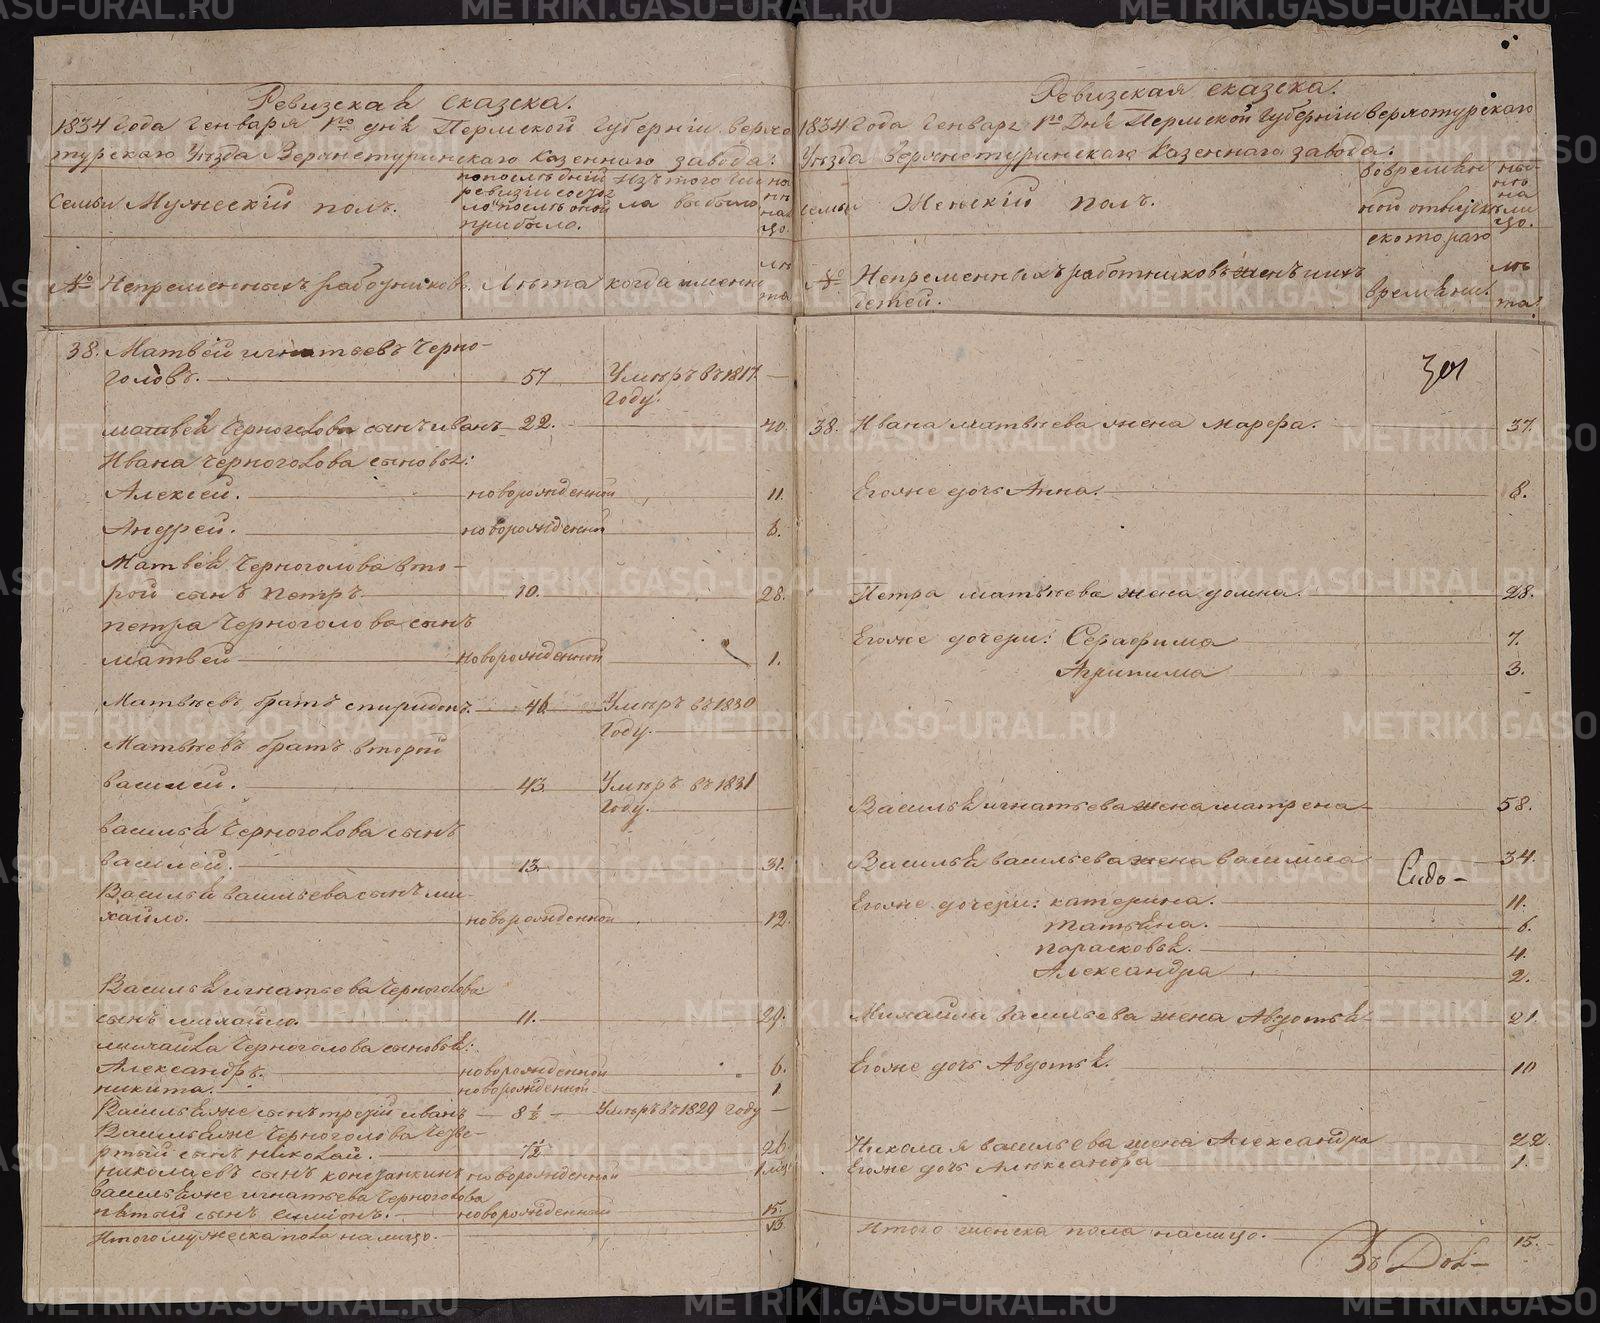 Ревизская сказска.
1834 Года Генваря 1го дня Пермской Губерніи верхо
турскаго Уезда Верхнетуринскаго Казеннаго завода.
Семьи Мужескій полъ.
попоследней
ревизіи состоя
ло, после оной
прибыло.
Изъ того чи
ла выбыло
но
не
на
цо.
№ Непременныхъ работниковъ. Лета когда именно
ле
та
38. Матвей игнатьевъ Черно-
головъ. 57 Умеръ въ 1817.
Году.
матвея Черноголова сынъ иванъ 22. 40.
Ивана Черноголова сыновья:
Алексей. новорожденной 11.
Андрей. новорожденной 8.
Матвея Черноголова вто-
рой сынъ петръ. 10. 28.
петра Черноголова сынъ
матвей новорожденной 1.
Матвеевъ братъ спиридонъ. 46. Умеръ въ 1830
Году.
Матвеевъ братъ второй
василей. 43 Умеръ въ 1831
Году.
василья Черноголова сынъ
василей. 13. 31.
Василья васильева сынъ ми
хайло. новорожденной 12.
Василья игнатьева Черноголова
сынъ михайло. 11. 29.
михайла Черноголова сыновья:
Александръ. новорожденной 6.
никита. новорожденной 1
Васильяже сынъ третій иванъ 8 1/2 Умеръ въ 1829 Году
Васильяже Черноголова четве-
ртый сынъ николай. 7 1/2 26
николаевъ сынъ констанкинъ новорожденной 1 ме:
васильяже игнатьева Черноголова
пятый сынъ симіонъ. новорожденный 15.
Итого мужеска пола налицо. 13
Ревизская сказска.
1834 Года Генваря 1го Дня Пермской Губерніи верхотурскаго
Уезда верхнетуринскаго Казеннаго завода.
семьи Женскій полъ.
вовремен
ной отлучке
скотораго
ны-
не
на
ли
цо.
№ Непременныхъ работниковъ женъ иихъ
детей.
времени.
ле
та.
301
38. Ивана матвеева жена марфа. 37.
Егоже дочь Анна. 8.
Петра матвеева жена домна. 28.
Егоже дочери: Серафима 7.
Агрипима 3.
Василья игнатьева жена матрена 58.
Василья васильева жена василиса 34.
Сидо-
Егоже дочери: катерина. 11.
татьяна. 6.
парасковья. 4.
Александра 2.
Михайли васильева жена Авдотья 21.
Егоже дочь Авдотья. 10
Николая васильева жена Александра 22.
Егоже дочь Александра 1.
Итого женска пола налицо. 15.
METRIKI.GASO-URAL.RU